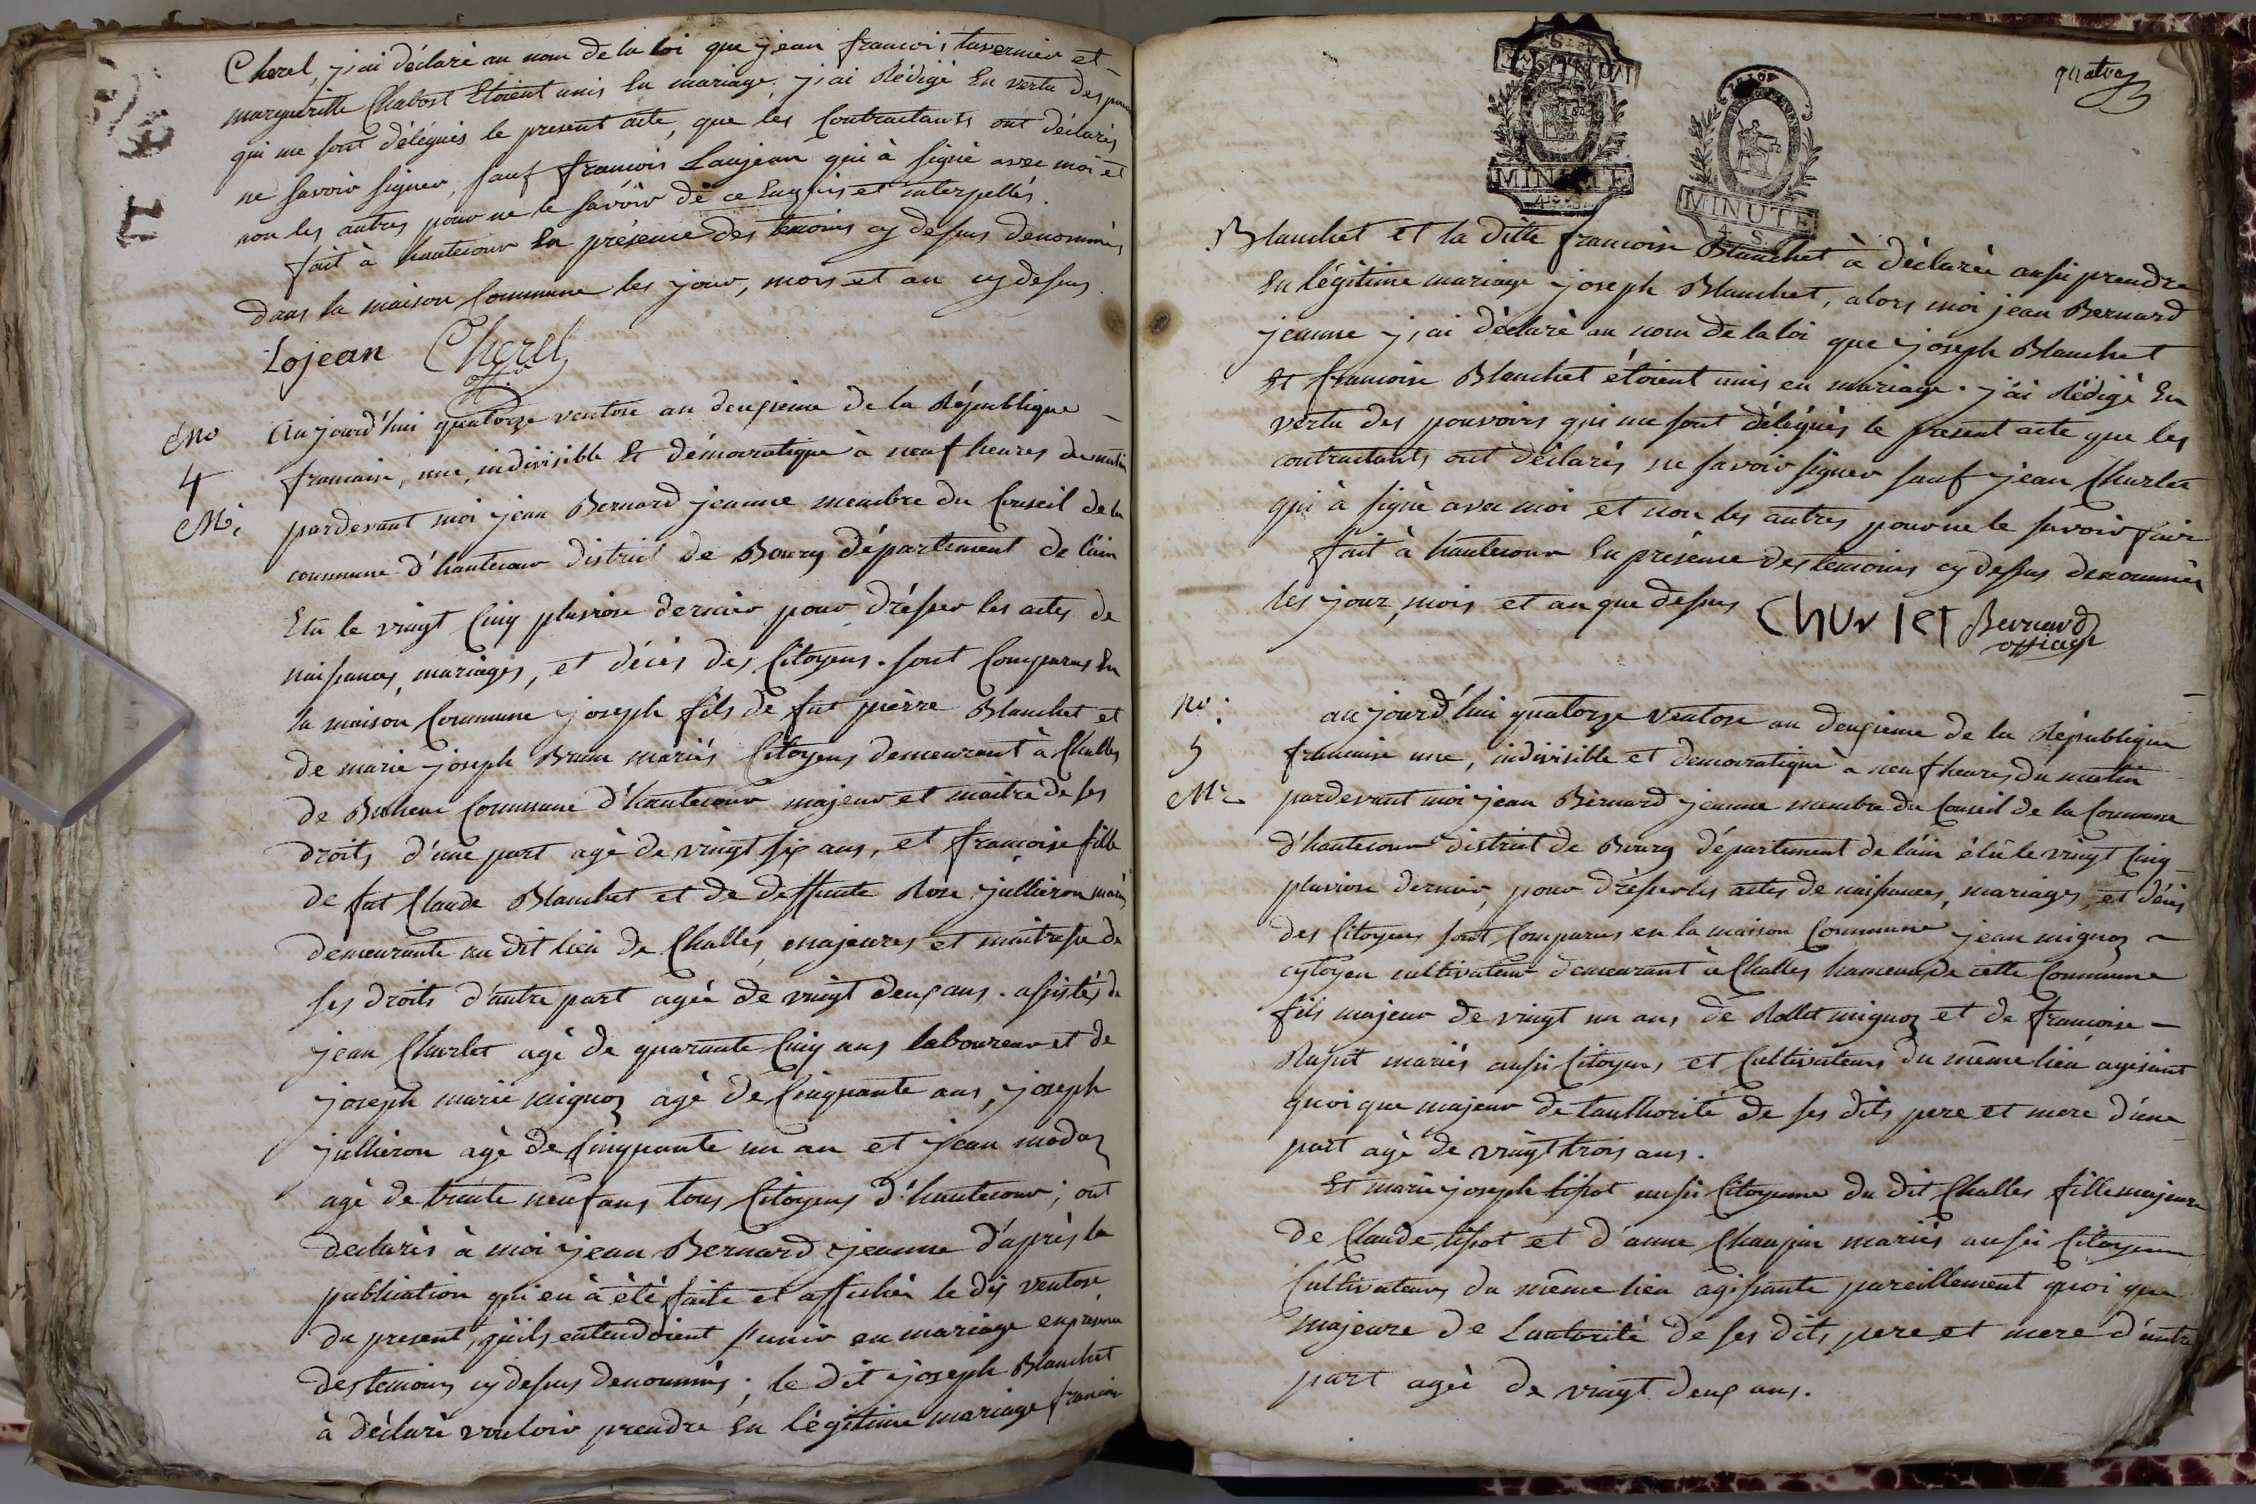 Cherel, j'ai déclaré au nom de la loi que jean francois tavernier et
margueritte Chabost Etoient unis En mariage, j'ai Rédigé En vertu des
qui me sont délégués le present acte, que les Contractants ont déclarés
ne savoir signer, sauf francois Laujean qui à signé avec moi et
non les autres pour ne le savoir de ce Enquis et interpellés.
fait à hautecour En présence des temoins cy dessus denommés
dans la maison Commune les jour, mois et an cy dessus
Lojean Cherel
off.
No
4
M.
Aujourd'hui quatorze ventose an deuxieme de la République
francaise, une, indivisible Et démocratique à neuf heures du matin
pardevant moi jean Bernard jeaune membre du Conseil de la
commune d'hautecour district de Bourg département de l'ain
Elu le vingt Cinq pluviose dernier pour drésser les actes de
naissances, mariages, et décès des Citoyens. sont Comparus En
la maison Commune joseph fils de fut pierre Blanchet et
de marie joseph Brun mariés Citoyens demeurant à Challes
de Commune d'hautecour majeur et maitre de ses
droits d'une part agé de vingt six ans, et francoise fille
de fut Claude Blanchet et de deffunte Rose jullieron mariés
demeurante au dit lieu de Challes, majeures et maitresse de
ses droits d'autre part agée de vingt deux ans. assistés de
jean Churlet agé de quarante Cinq ans laboureur et de
joseph marie mignoz agé de Cinquante ans, joseph
jullieron agé de Cinquante un an et jean modaz
agé de trente neuf ans tous Citoyens d'hautecour; ont
declarés à moi jean Bernard jeaune d'après la
publication qui en à été faite et affichée le dix ventose
du present, qu'ils entendoient s'unir en mariage en presence
des temoins cy dessus denommés; le dit joseph Blanchet
à déclaré vouloir prendre En légitime mariage francoise
quatre
MINUTE
4 S.
MINUTE
4 S.
Blanchet et la ditte francoise Blanchet à déclarée aussi prendre
En légitime mariage joseph Blanchet, alors moi jean Bernard
jeaune j'ai déclaré au nom de la loi que joseph Blanchet
Et francoise Blanchet étoient unis en mariage. j'ai Rédigé En
vertu des pouvoirs qui me sont délégués le present acte que les
contractants ont déclarés ne savoir signer sauf jean Churlet
qui à signé avec moi et non les autres pour ne le savoir fair
fait à hautecour En présence des temoins cy dessus denommés
les jour, mois et an que dessus Churlet Bernard
officier
No.
5
Mr
aujourd'hui quatorze ventose an deuxieme de la République
francaise une, indivisible et democratique à neuf heures du matin
pardevant moi jean Bernard jeaune membre du Conseil de la Commune
d'hautecour district de Bourg département de l'ain élu le vingt Cinq
pluviose dernier, pour drésser les actes de naissances, mariages, et décès
des Citoyens sont Comparus en la maison Commune jean mignoz
cytoyen cultivateur demeurant à Challes hameau de cette Commune
fils majeur de vingt un ans de Rollet mignoz et de francoise
Rapit mariés aussi Citoyens et Cultivateurs du même lieu agissant
quoi que majeur de l'authorité de ses dits pere et mere d'une
part agé de vingt trois ans.
Et marie joseph tissot aussi Citoyenne du dit Challes fille majeure
de Claude tissot et d'anne Chanpin mariés aussi Citoyens
Cultivateurs du même lieu agissante pareillement quoi que
majeure de L'autorité de ses dits pere et mere d'autre
part agée de vingt deux ans.